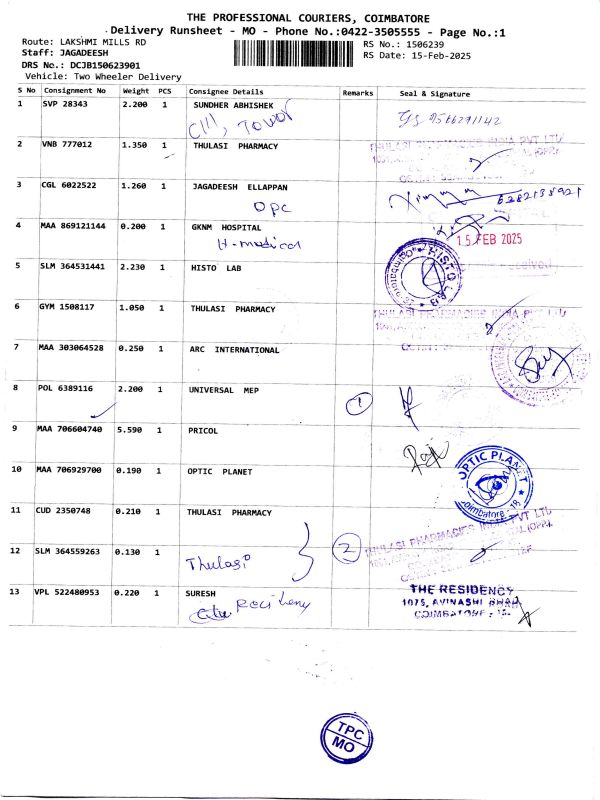 THE PROFESSIONAL COURIERS, COIMBATORE
Delivery Runsheet - MO - Phone No.:0422-3505555 - Page No.:1
Route: LAKSHMI MILLS RD
RS No.: 1506239
Staff: JAGADEESH
RS Date: 15-Feb-2025
DRS No.: DCJB150623901
Vehicle: Two Wheeler Delivery
S No Consignment No Weight PCS Consignee Details Remarks Seal & Signature
1 SVP 28343 2.200 1 SUNDHER ABHISHEK
Tower
2 VNB 777012 1.350 1 THULASI PHARMACY
THULASI PHARMACIES INDIA PVT LTD
3 CGL 6022522 1.260 1 JAGADEESH ELLAPPAN
OPC
4 MAA 869121144 0.200 1 GKNM HOSPITAL
H-medical
15 FEB 2025
5 SLM 364531441 2.230 1 HISTO LAB
HISTO LAB
6 GYM 1508117 1.050 1 THULASI PHARMACY
THULASI PHARMACIES INDIA PVT LTD
7 MAA 303064528 0.250 1 ARC INTERNATIONAL
8 POL 6389116 2.200 1 UNIVERSAL MEP
1
9 MAA 706604740 5.590 1 PRICOL
10 MAA 706929700 0.190 1 OPTIC PLANET
OPTIC PLANET
Coimbatore - 18
11 CUD 2350748 0.210 1 THULASI PHARMACY
THULASI PHARMACIES INDIA PVT LTD
12 SLM 364559263 0.130 1
Thulasi
2
13 VPL 522480953 0.220 1 SURESH
THE RESIDENCY
1075, AVINASHI ROAD
COIMBATORE - 18.
TPC
MO